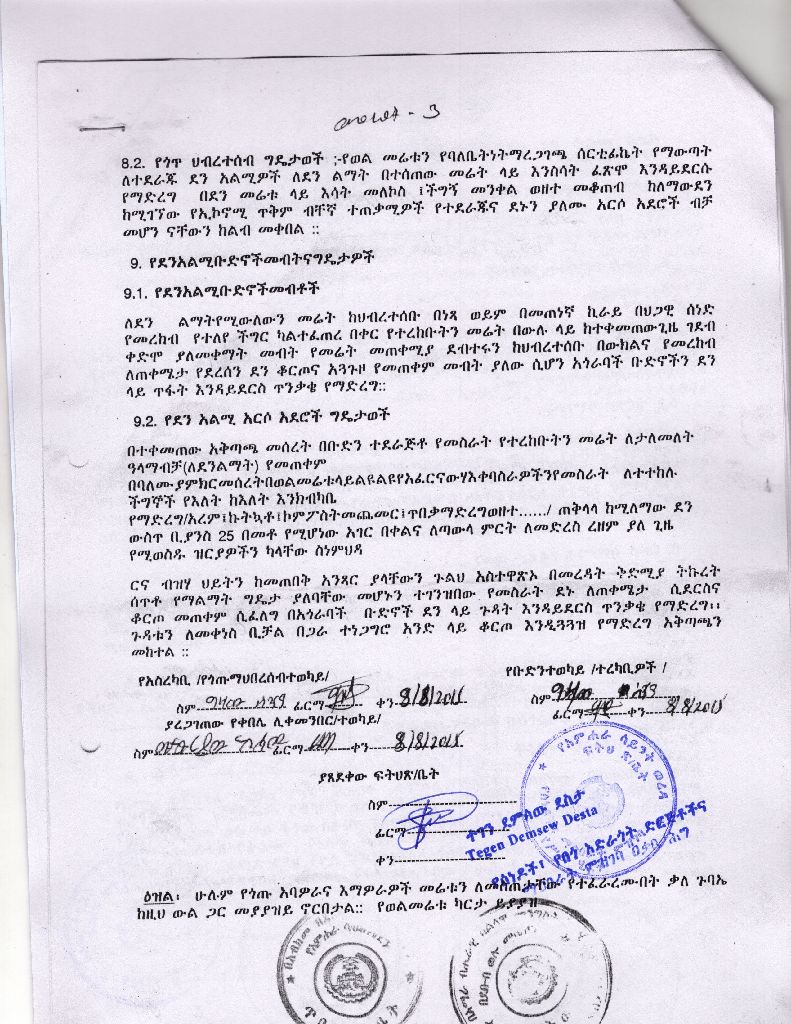 8.2. የጎጥ ህብረተሰብ ግዴታወች ;-የወል መሬቱን የባለቤትነትማረጋገጫ ሰርቲፊኬት የማውጣት
ለተደራጁ ደን አልሚዎች ለደን ልማት በተሰጠው መሬት ላይ እንስሳት ፈጽሞ እንዳይደርሱ
የማድረግ በደን መሬቱ ላይ እሳት መለኮስ ፤ችግኝ መንቀል ወዘተ መቆጠብ ከለማውደን
ከሚገኘው የኢኮኖሚ ጥቅም ብቸኛ ተጠቃሚዎች የተደራጁና ደኑን ያለሙ አርሶ አደሮች ብቻ
መሆን ናቸውን ከልብ መቀበል ::
9. የደንአልሚቡድኖችመብትናግዴታዎች
9.1. የደንአልሚቡድኖችመብቶች
ለደን ልማትየሚውለውን መሬት ከህብረተሰቡ በነጻ ወይም በመጠነኛ ኪራይ በህጋዊ ሰነድ
የመረከብ የተለየ ችግር ካልተፈጠረ በቀር የተረከቡትን መሬት በውሉ ላይ ከተቀመጠውጊዜ ገደብ
ቀድሞ ያለመቀማት መብት የመሬት መጠቀሚያ ደብተሩን ከህብረተሰቡ በውክልና የመረከብ
ለጠቀሜታ የደረሰን ደን ቆርጦና አጓጉዞ የመጠቀም መብት ያለው ሲሆን አጎራባች ቡድኖችን ደን
ላይ ጥፋት እንዳይደርስ ጥንቃቄ የማድረግ::
9.2. የደን አልሚ አርሶ አደሮች ግዴታወች
በተቀመጠው አቅጣጫ መሰረት በቡድን ተደራጅቶ የመስራት የተረከቡትን መሬት ለታለመለት
ዓላማብቻ(ለደንልማት) የመጠቀም
በባለሙያምክርመሰረትበወልመሬቱላይልዩልዩየአፈርናውሃእቀባስራዎችንየመስራት ለተተከሉ
ችግኞች የእለት ከእለት እንክብካቤ
የማድረግ/አረም፤ኩትኳቶ፤ኮምፖስትመጨመር፤ጥበቃማድረግወዘተ....../ ጠቅላላ ከሚለማው ደን
ውስጥ ቢያንስ 25 በመቶ የሚሆነው አገር በቀልና ለጣውላ ምርት ለመድረስ ረዘም ያለ ጊዜ
የሚወስዱ ዝርያዎችን ካላቸው ስነምህዳ
ርና ብዝሃ ህይትን ከመጠበቅ አንጻር ያላቸውን ጉልህ አስተዋጽኦ በመረዳት ቅድሚያ ትኩረት
ሰጥቶ የማልማት ግዴታ ያለባቸው መሆኑን ተገንዝበው የመስራት ደኑ ለጠቀሜታ ሲደርስና
ቆርጦ መጠቀም ሲፈለግ በአጎራባች ቡድኖች ደን ላይ ጉዳት እንዳይደርስ ጥንቃቄ የማድረግ፡፡
ጉዳቱን ለመቀነስ ቢቻል በጋራ ተነጋግሮ አንድ ላይ ቆርጦ እንዲጓጓዝ የማድረግ አቅጣጫን
መከተል ::
የአስረካቢ /የጎጡማህበረሰብተወካይ/
የቡድንተወካይ /ተረካቢዎች /
ስም ፊርማ ቀን 8/8/2015
ስም
ፊርማ ቀን 8/8/2015
ያረጋገጠው የቀበሌ ሊቀመንበር/ተወካይ/
ስም ፊርማ ቀን 8/8/2015
ያጸደቀው ፍትህጽ/ቤት
ስም
ፊርማ
ቀን
ተገን ደምሰው ደስታ
Tegen Demsew Desta
ዕዝል፡ ሁሉም የጎጡ አባዎራና እማዎራዎች መሬቱን ለመስጠታቸው የተፈራረሙበት ቃለ ጉባኤ
ከዚህ ውል ጋር መያያዝይ ኖርበታል:: የወልመሬቱ ካርታ ይያያዝ